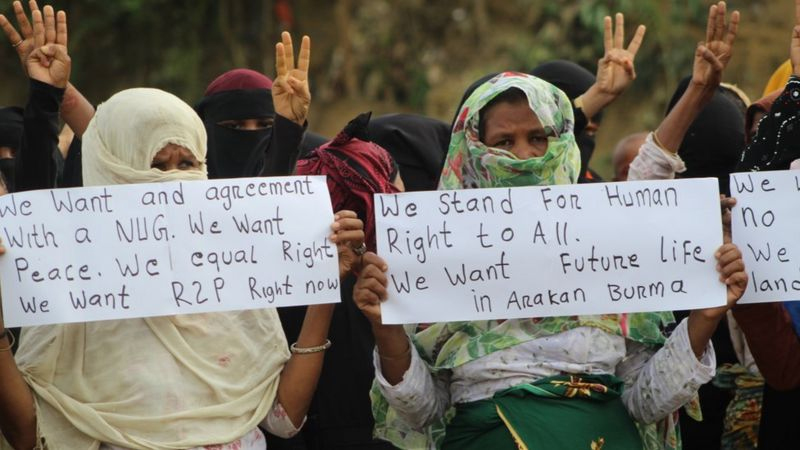 We Want and agreement
With a NUG. We Want
Peace. We equal Right
We Want R2P Right now
We Stand For Human
Right to All.
We Want Future life
in Arakan Burma
We
no
We
land